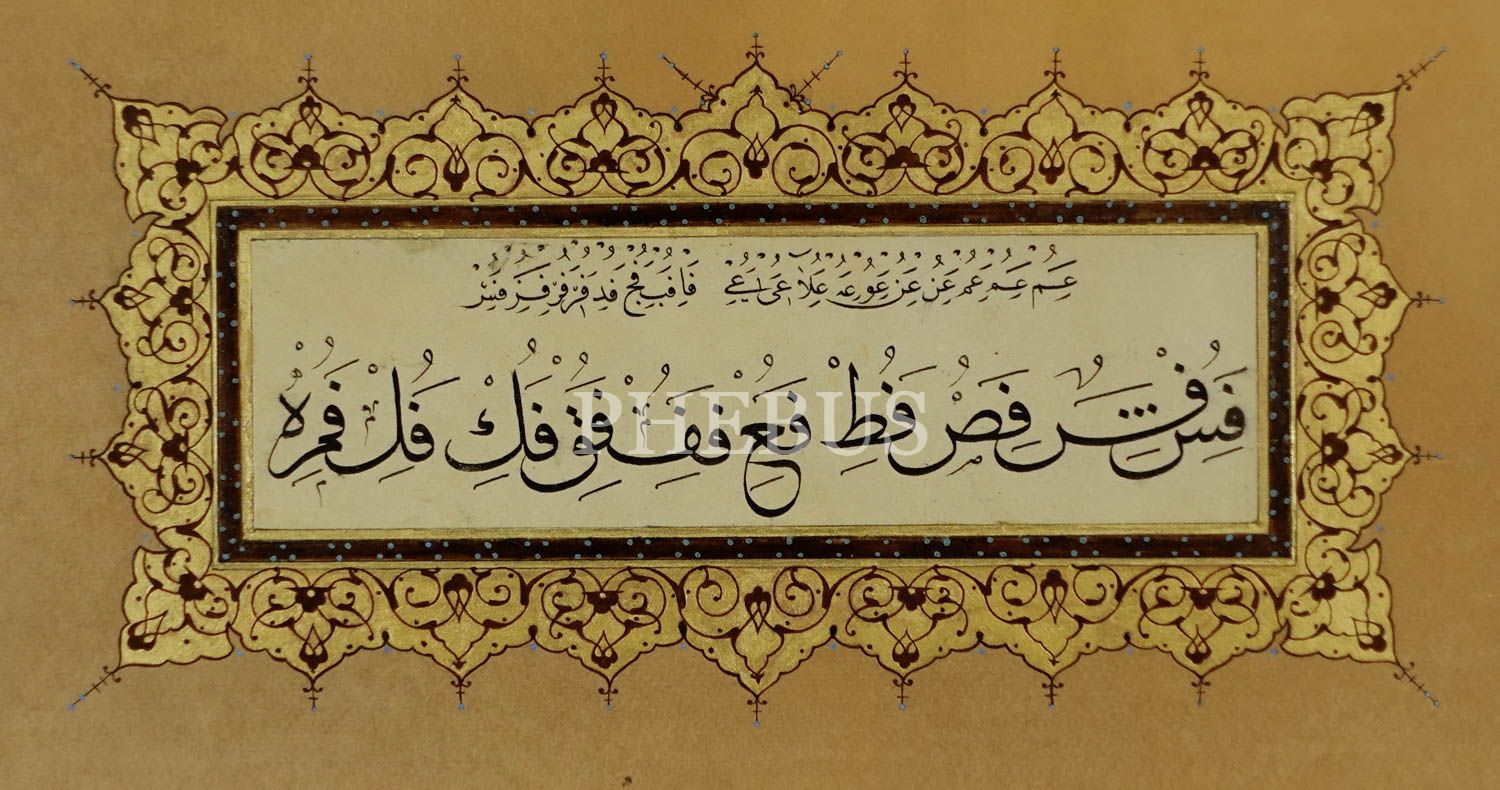 عم عم عم عم عن عن عو عه علا عى فا فب فج فد فر فر
فس فس فص فط فع فف فق فك فل
PHEBUS